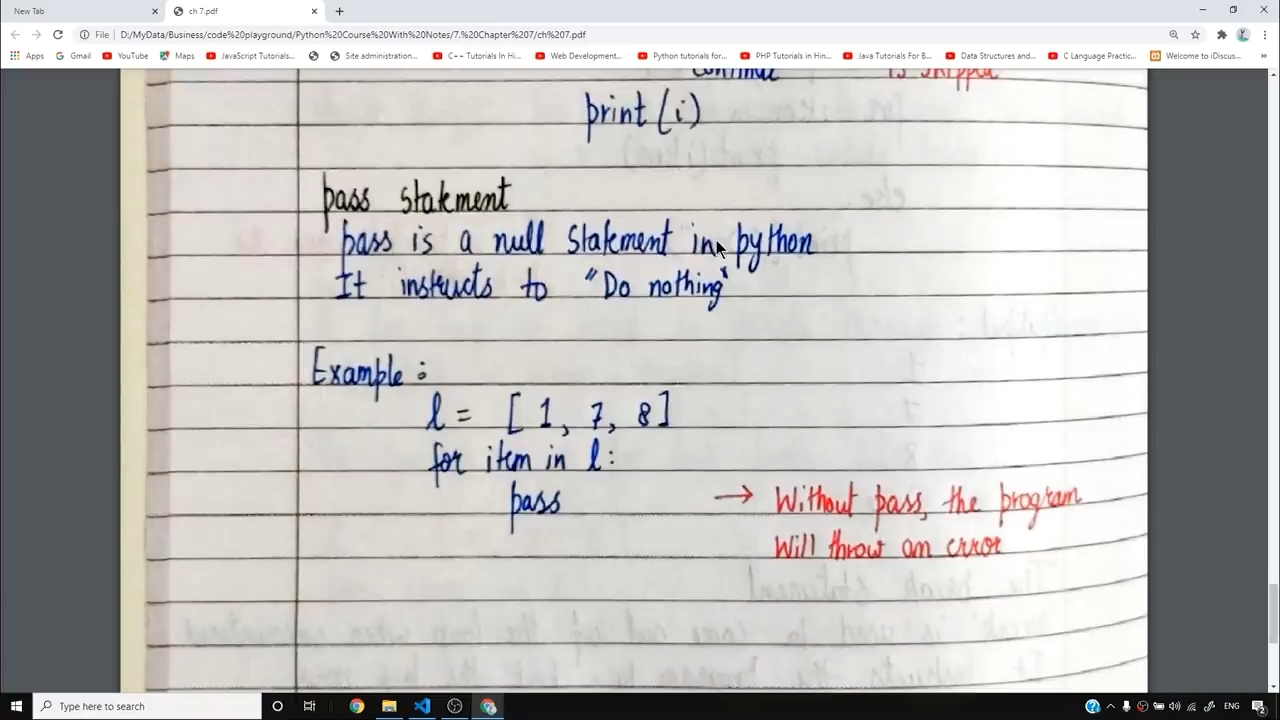 New Tab
ch 7.pdf
File
D:/MyData/Business/code%20playground/Python%20Course%20With%20Notes/7.%20Chapter%207/ch%207.pdf
Apps
Gmail
YouTube
Maps
JavaScript Tutorials...
Site administration...
C++ Tutorials In Hi...
Web Development...
Python tutorials for...
PHP Tutorials in Hin...
Java Tutorials For B...
Data Structures and...
C Language Practic...
Welcome to iDiscus...
continue is skipped
print (i)
pass statement
pass is a null statement in python
It instructs to "Do nothing"
Example :
l = [ 1, 7, 8]
for item in l :
pass → Without pass, the program
Will throw an error
Type here to search
ENG
2